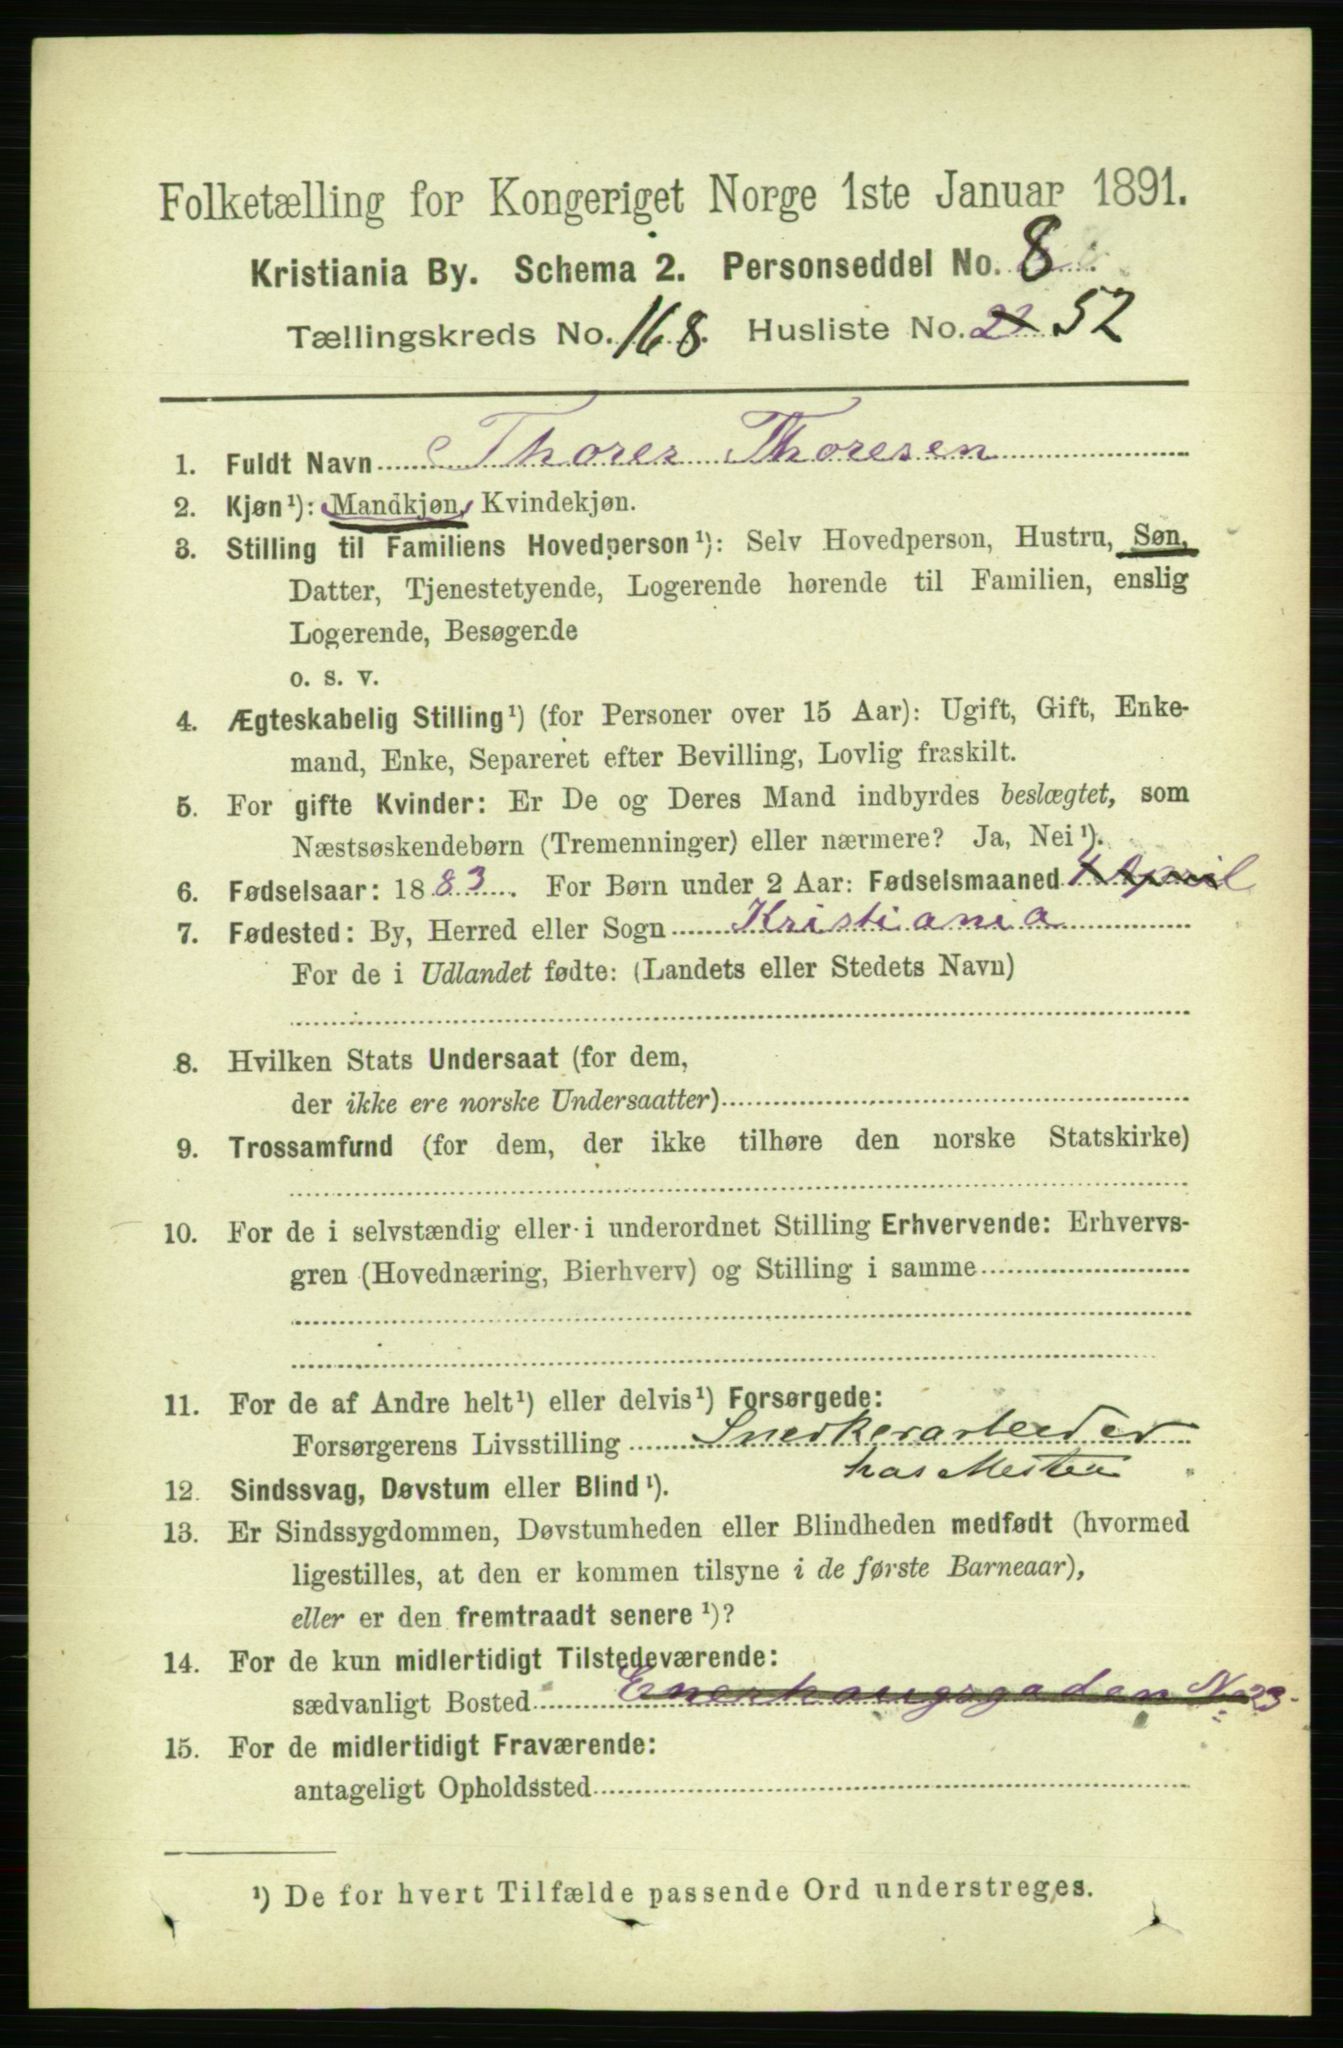 Folketælling for Kongeriget Norge 1ste Januar 1891.
Kristiania By. Schema 2. Personseddel No. 8
Tællingskreds No. 168. Husliste No. 52
1. Fuldt Navn Thorer Thoresen
2. Kjøn¹): Mandkjøn, Kvindekjøn.
3. Stilling til Familiens Hovedperson¹): Selv Hovedperson, Hustru, Søn,
Datter, Tjenestetyende, Logerende hørende til Familien, enslig
Logerende, Besøgende
o. s. v.
4. Ægteskabelig Stilling¹) (for Personer over 15 Aar): Ugift, Gift, Enke-
mand, Enke, Separeret efter Bevilling, Lovlig fraskilt.
5. For gifte Kvinder: Er De og Deres Mand indbyrdes beslægtet, som
Næstsøskendebørn (Tremenninger) eller nærmere? Ja, Nei¹).
6. Fødselsaar: 1883. For Børn under 2 Aar: Fødselsmaaned April
7. Fødested: By, Herred eller Sogn Kristiania
For de i Udlandet fødte: (Landets eller Stedets Navn)
8. Hvilken Stats Undersaat (for dem,
der ikke ere norske Undersaatter)
9. Trossamfund (for dem, der ikke tilhøre den norske Statskirke)
10. For de i selvstændig eller i underordnet Stilling Erhvervende: Erhvervs-
gren (Hovednæring, Bierhverv) og Stilling i samme
11. For de af Andre helt¹) eller delvis¹) Forsørgede:
Forsørgerens Livsstilling Snedkerarbeider
hos Mester
12. Sindssvag, Døvstum eller Blind¹).
13. Er Sindssygdommen, Døvstumheden eller Blindheden medfødt (hvormed
ligestilles, at den er kommen tilsyne i de første Barneaar),
eller er den fremtraadt senere¹)?
14. For de kun midlertidigt Tilstedeværende:
sædvanligt Bosted Enerhaugsgaden No 23
15. For de midlertidigt Fraværende:
antageligt Opholdssted
¹) De for hvert Tilfælde passende Ord understreges.